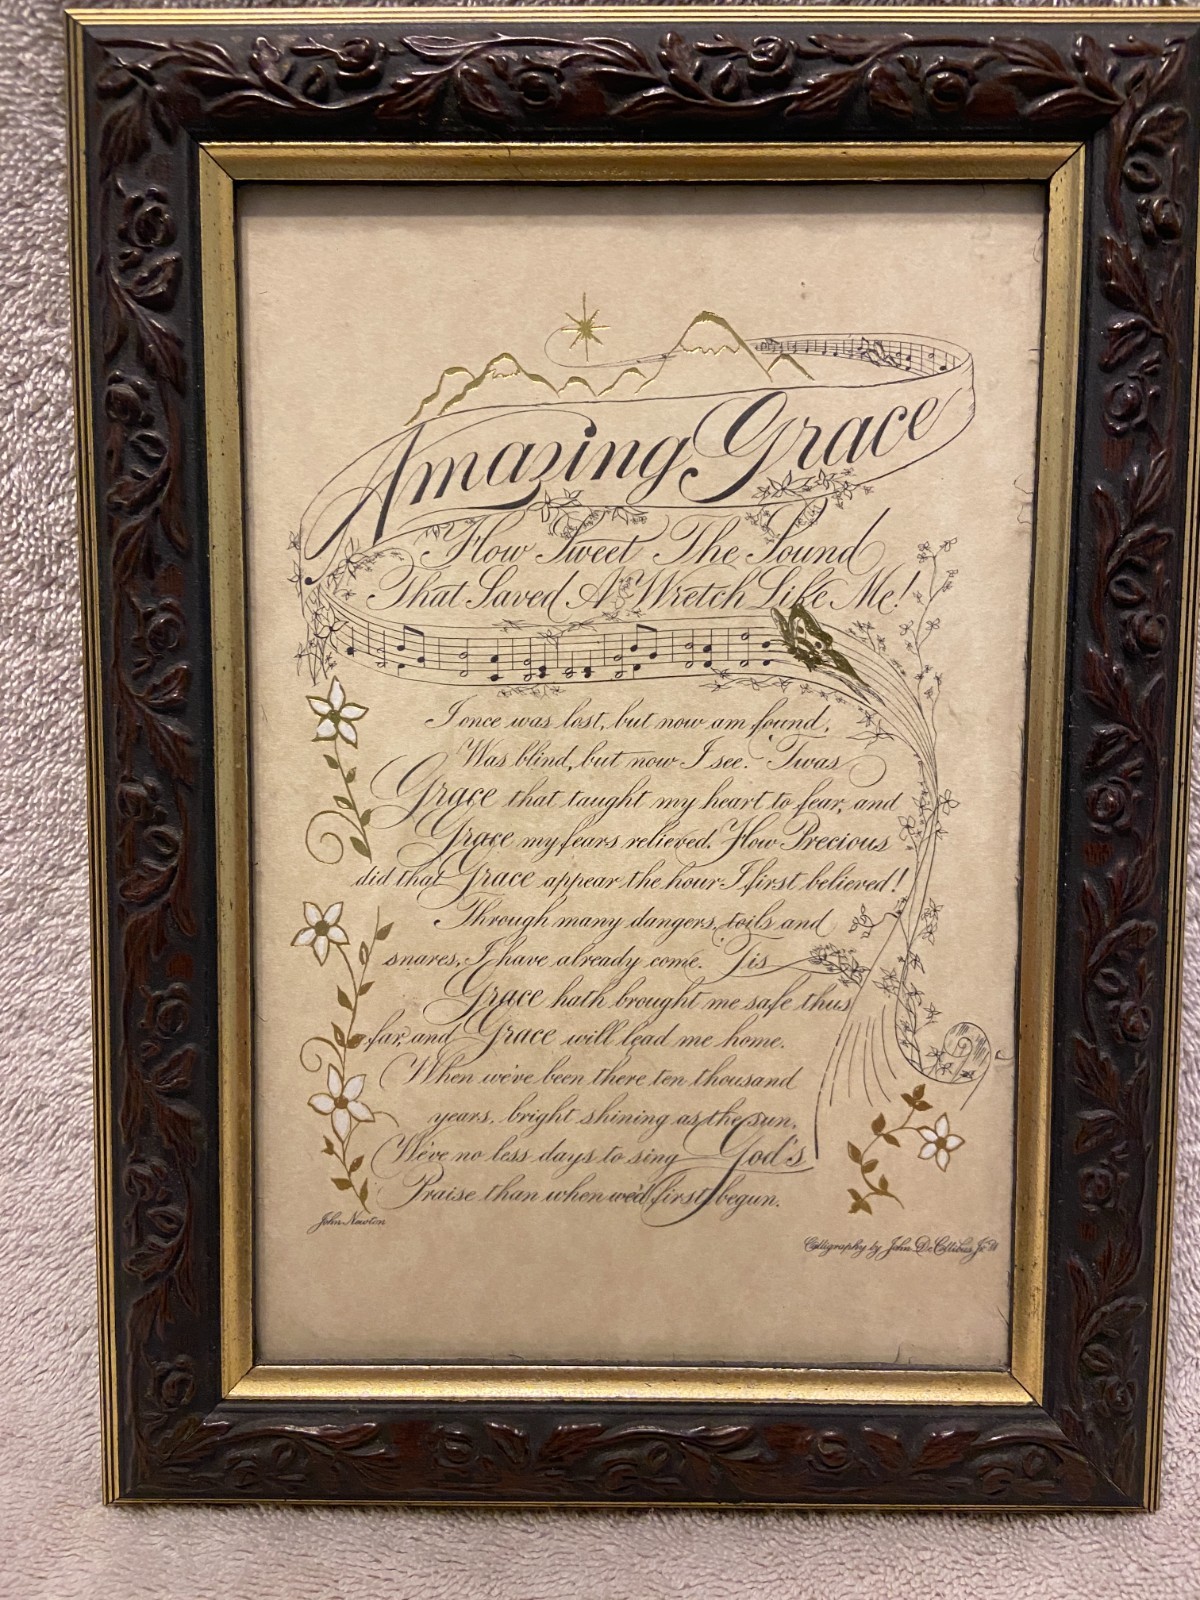 Amazing Grace
How Sweet The Sound
That Saved A Wretch Like Me!
I once was lost, but now am found,
Was blind, but now I see. 'Twas
Grace that taught my heart to fear, and
Grace my fears relieved. How Precious
did that Grace appear the hour I first believed!
Through many dangers, toils and
snares, I have already come. 'Tis
Grace hath brought me safe thus
far, and Grace will lead me home.
When we've been there ten thousand
years, bright shining as the sun,
We've no less days to sing God's
Praise than when we'd first begun.
John Newton
Calligraphy by John DeCollibus, Jr.